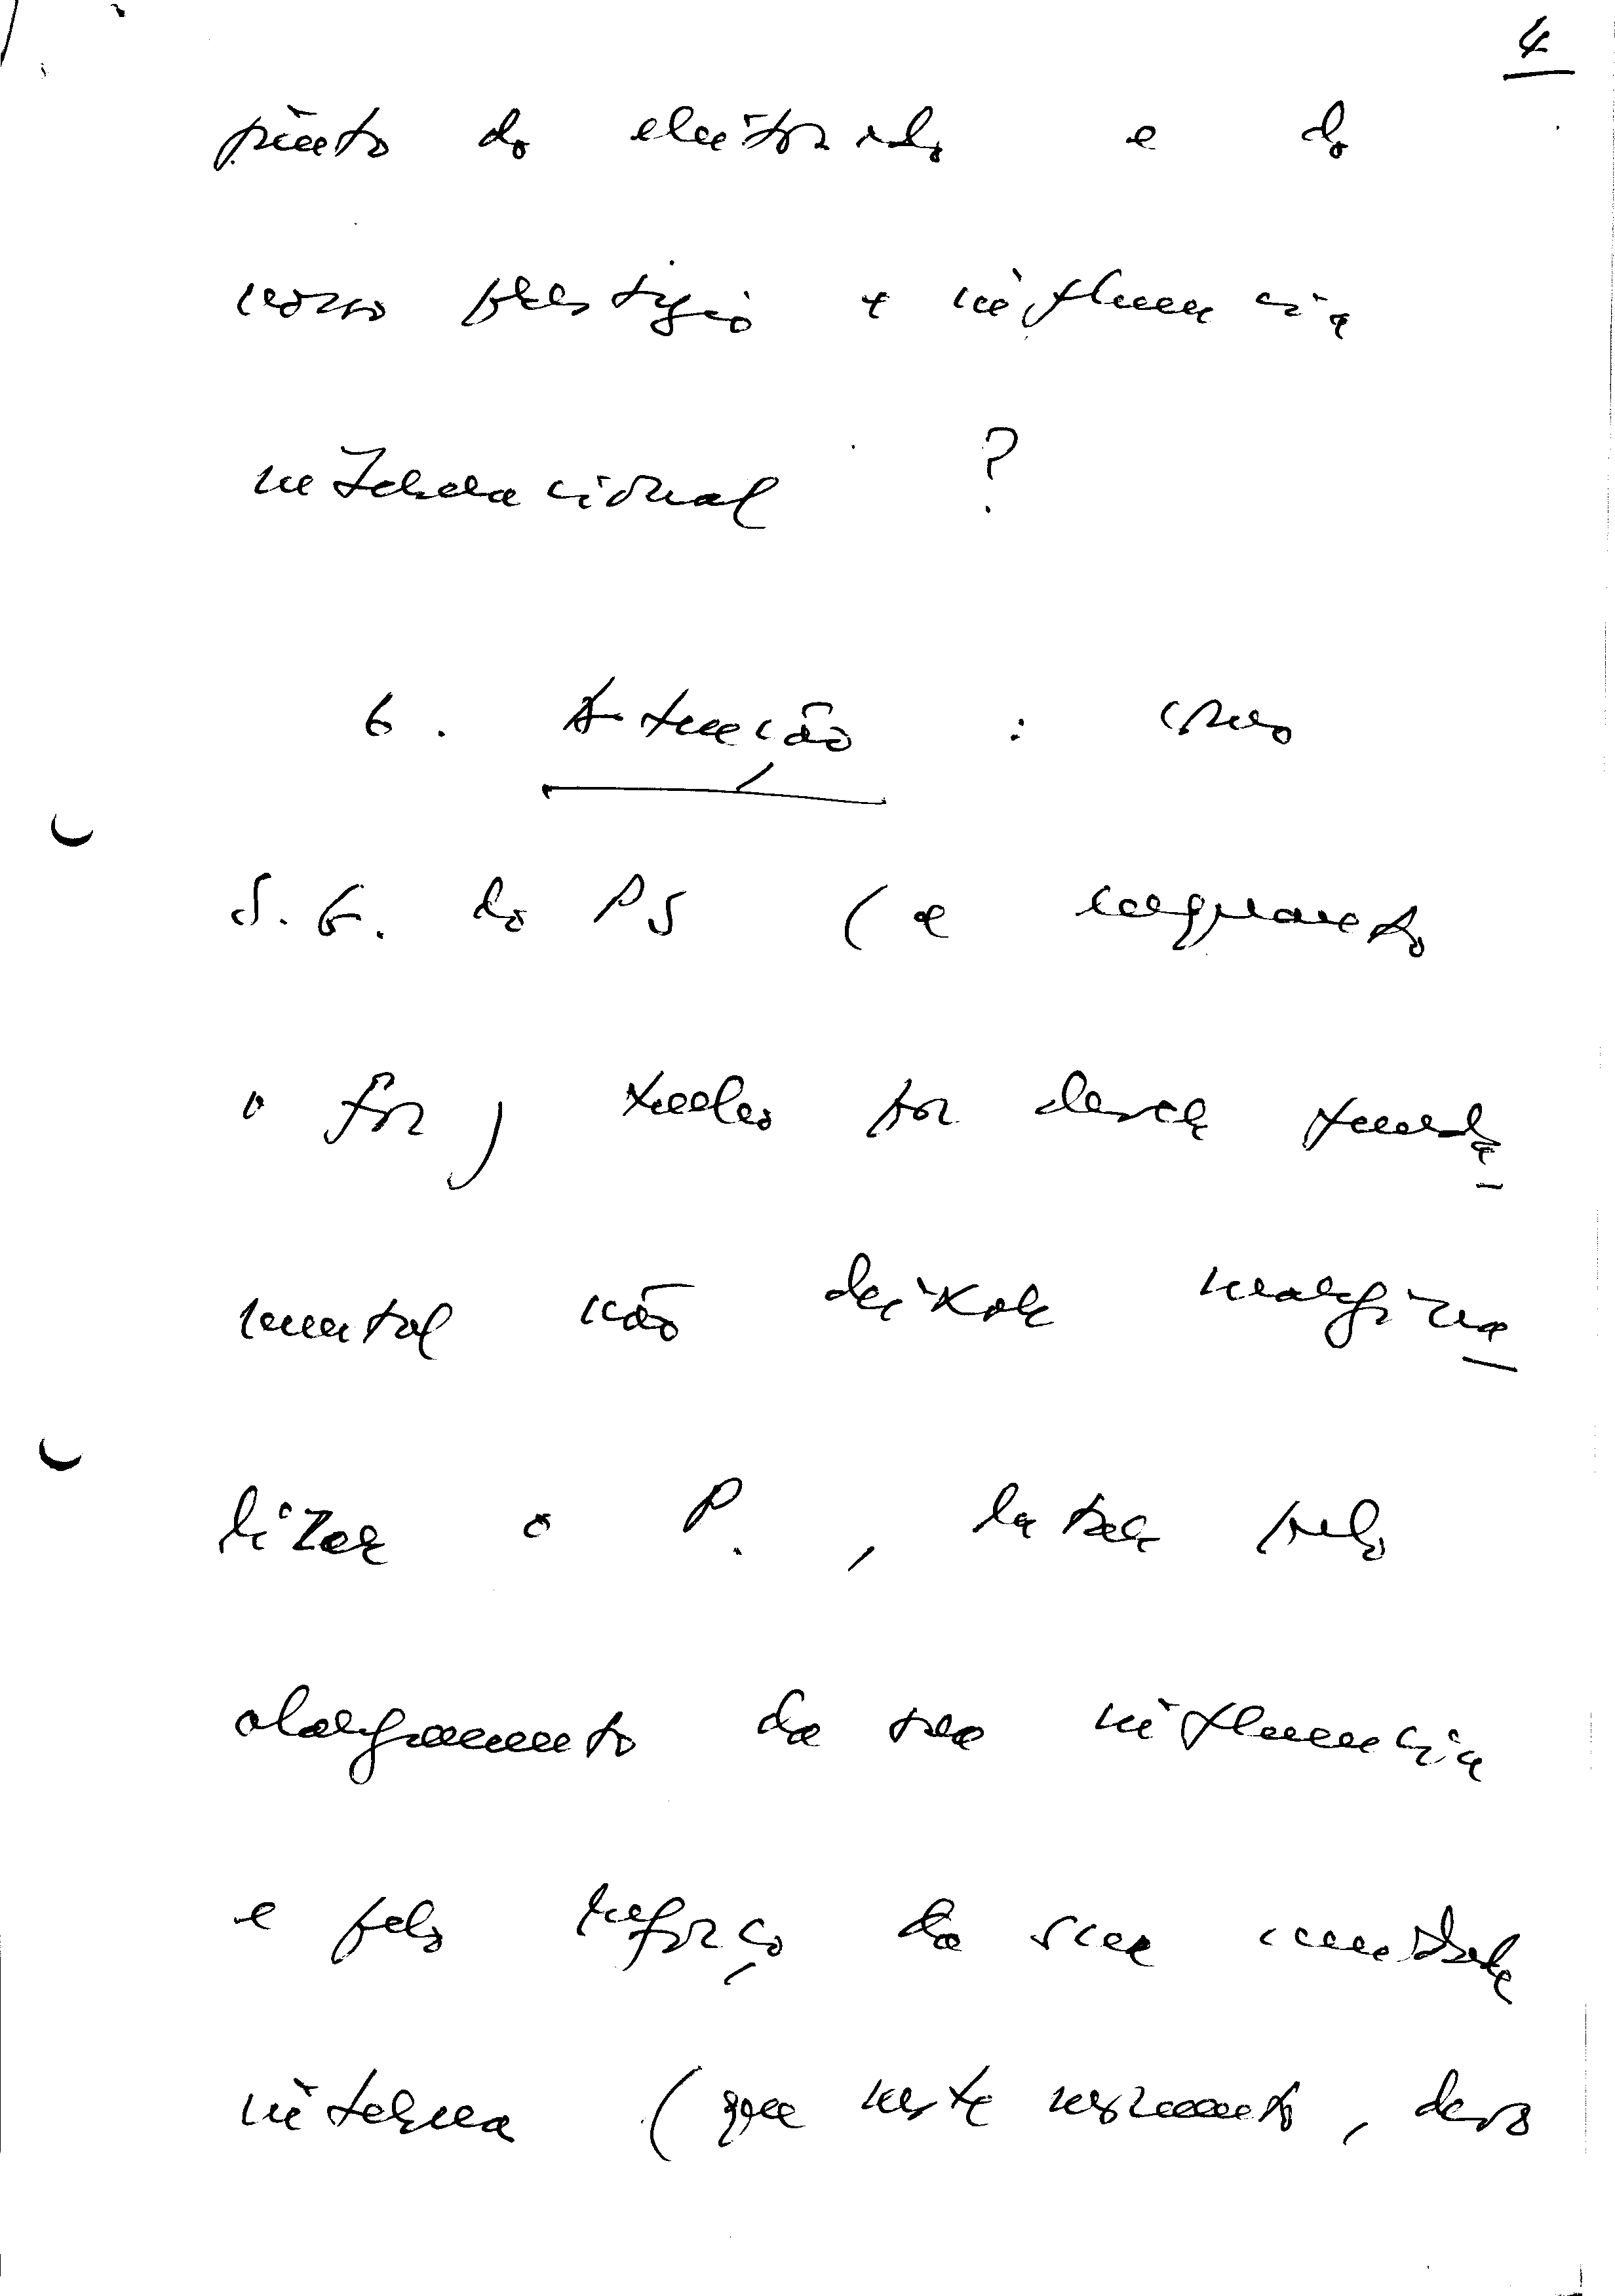 4
junto do eleitorado e do
nosso prestígio e influência
internacional ?
6. Atenção : como
S. G. do PS (e enquanto
o for) tenho por dever funda_
mental não deixar margina_
lizar o P., lutar pelo
alargamento da sua influência
e pelo reforço da sua unidade
interna (que neste momento, devo